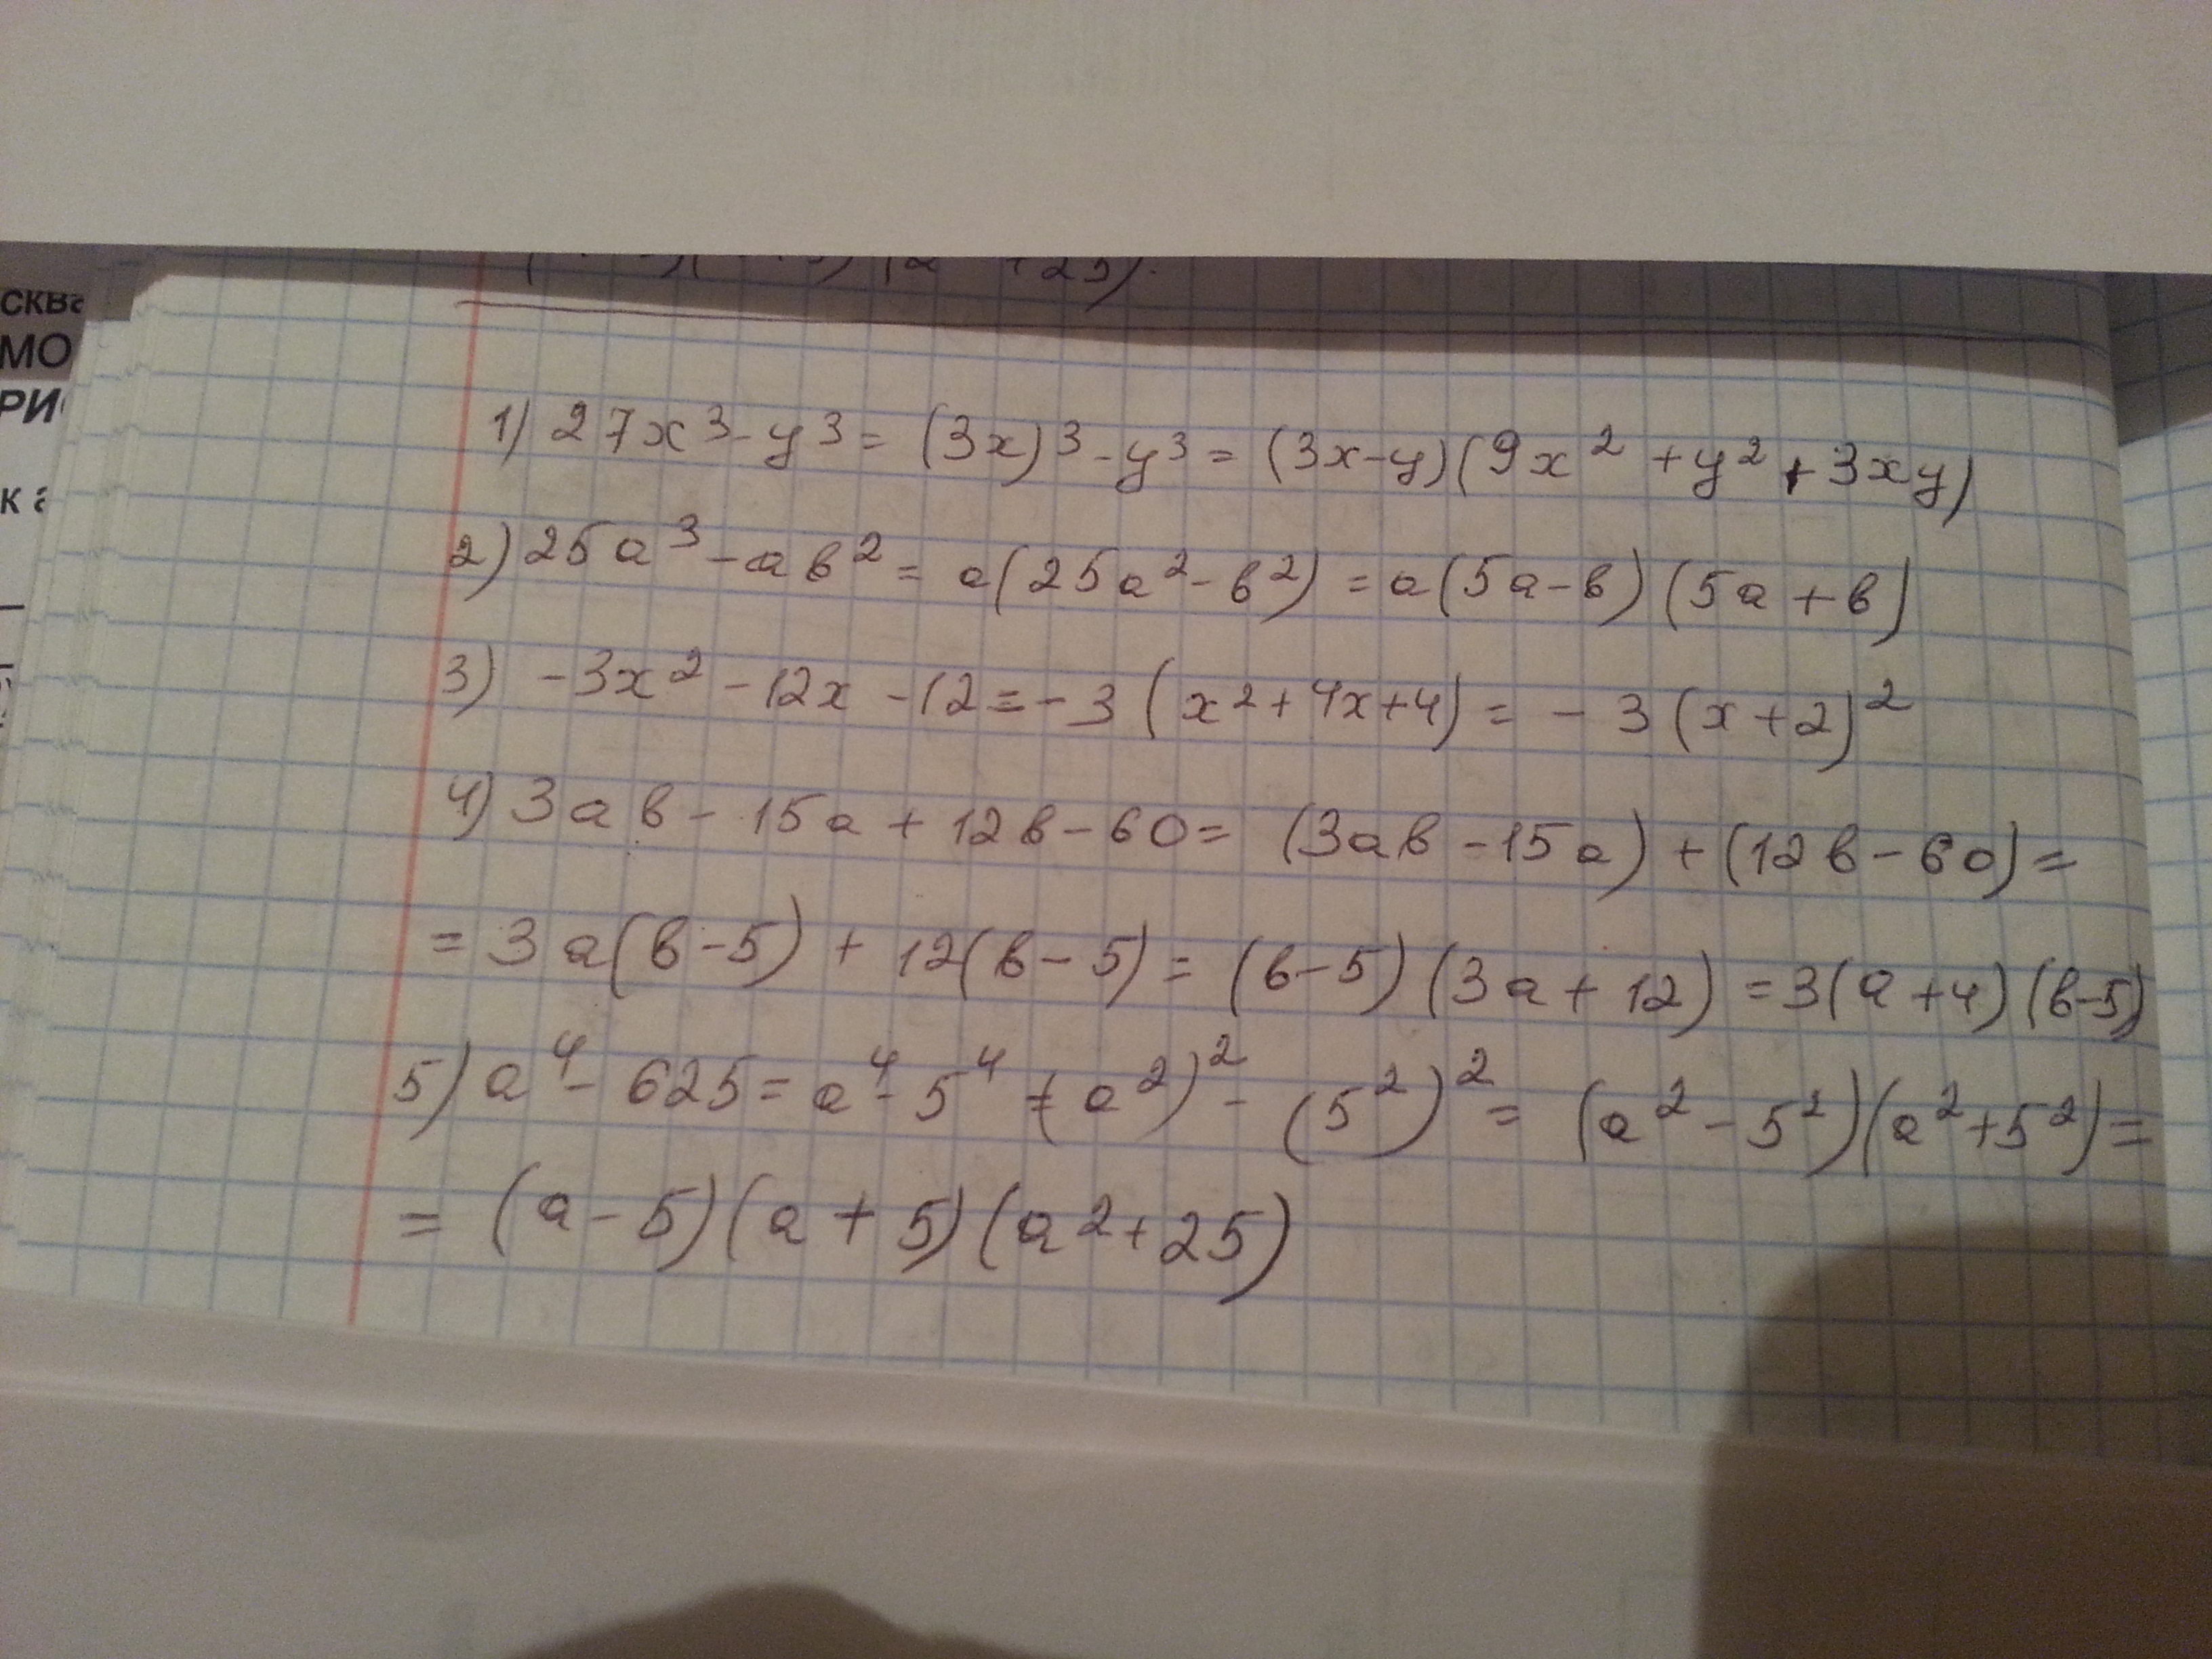 сква
МО
РИ
к а
+25).
1) 27x³-y³= (3x)³-y³= (3x-y)(9x²+y²+3xy)
2) 25a³-aв²= a(25a²-в²)=a(5a-в)(5a+в)
3) -3x²-12x-12=-3(x²+4x+4)=-3(x+2)²
4) 3aв-15a+12в-60=(3aв-15a)+(12в-60)=
=3a(в-5)+12(в-5)=(в-5)(3a+12)=3(a+4)(в-5)
5) a⁴-625=a⁴-5⁴=(a²)²-(5²)²=(a²-5²)(a²+5²)=
=(a-5)(a+5)(a²+25)